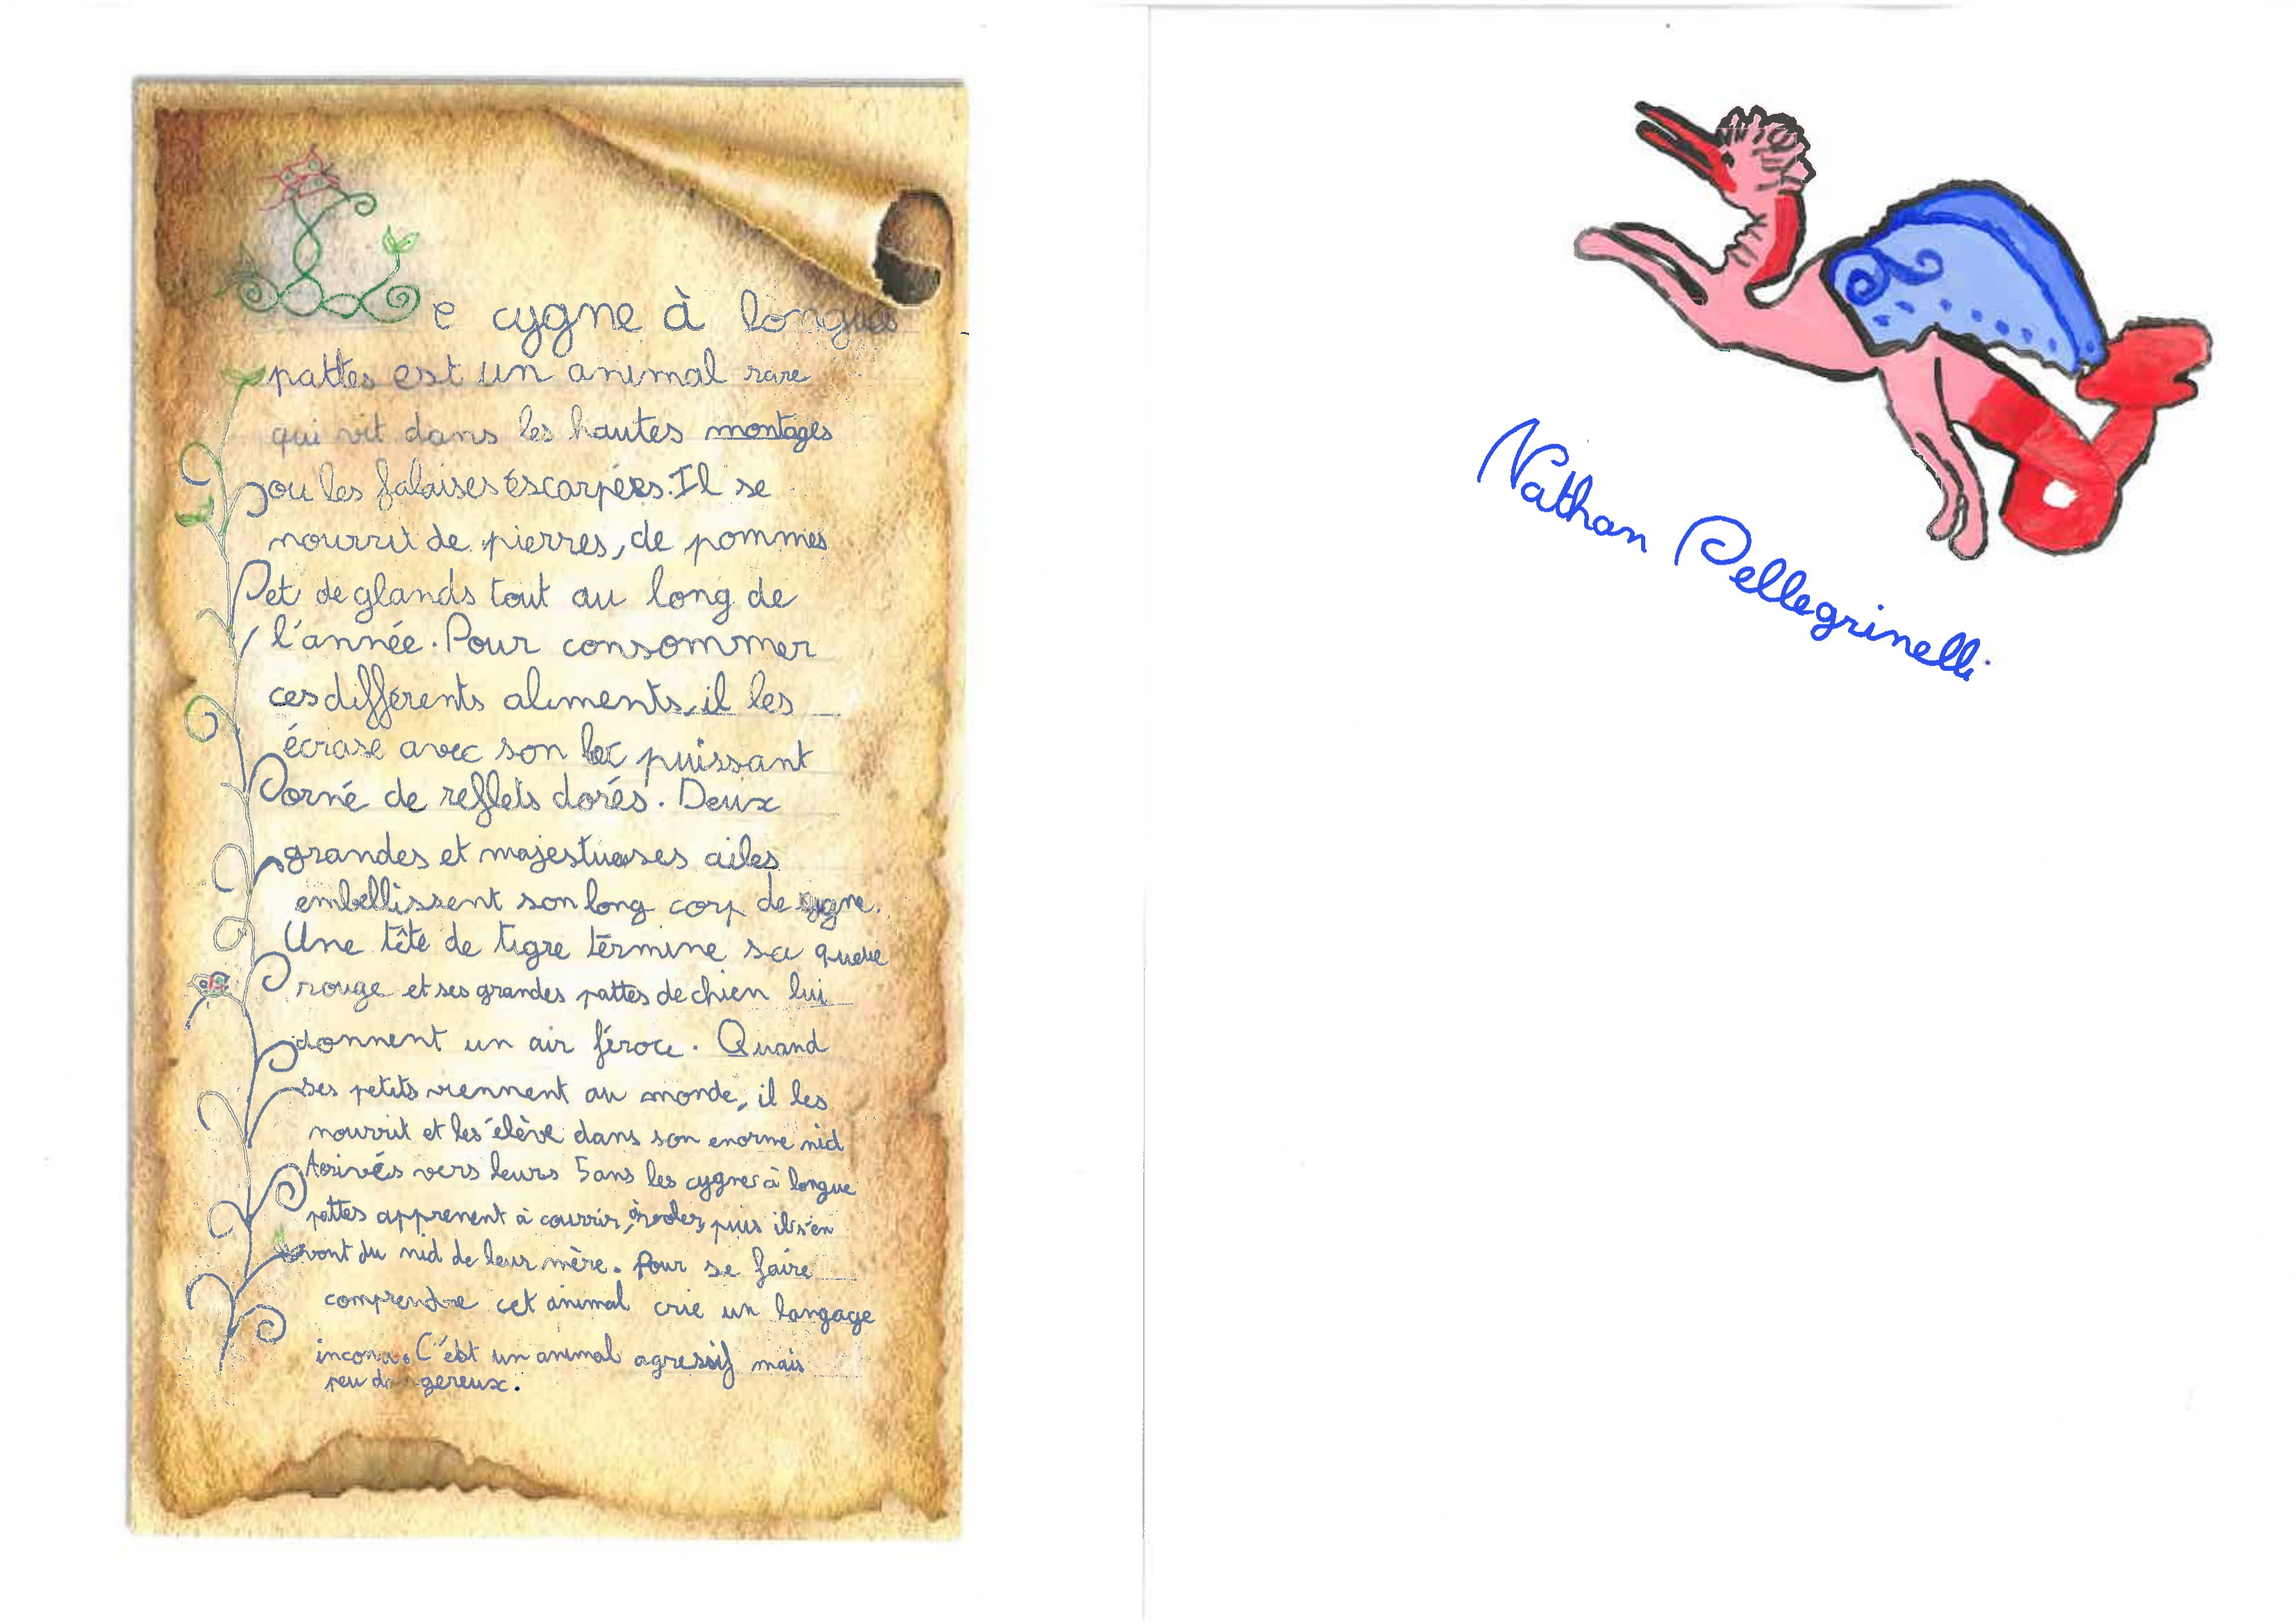 Le cygne à longues
pattes est un animal rare
qui vit dans les hautes montages
ou les falaises éscarpées. Il se
nourrit de pierres, de pommes
et de glands tout au long de
l'année. Pour consommer
ces différents aliments, il les
écrase avec son bec puissant
orné de reflets dorés. Deux
grandes et majestueuses ailes
embellissent son long corp de cygne.
Une tête de tigre termine sa queue
rouge et ses grandes pattes de chien lui
donnent un air féroce. Quand
ses petits viennent au monde, il les
nourrit et les élève dans son enorme nid
Arrivés vers leurs 5 ans les cygnes à longue
pattes apprenent à courrir, à voler, puis ils s'en
vont du nid de leur mère. Pour se faire
comprendre cet animal crie un langage
inconnu. C'ést un animal agressif mais
peu dangereux.
Nathan Pellegrinelli